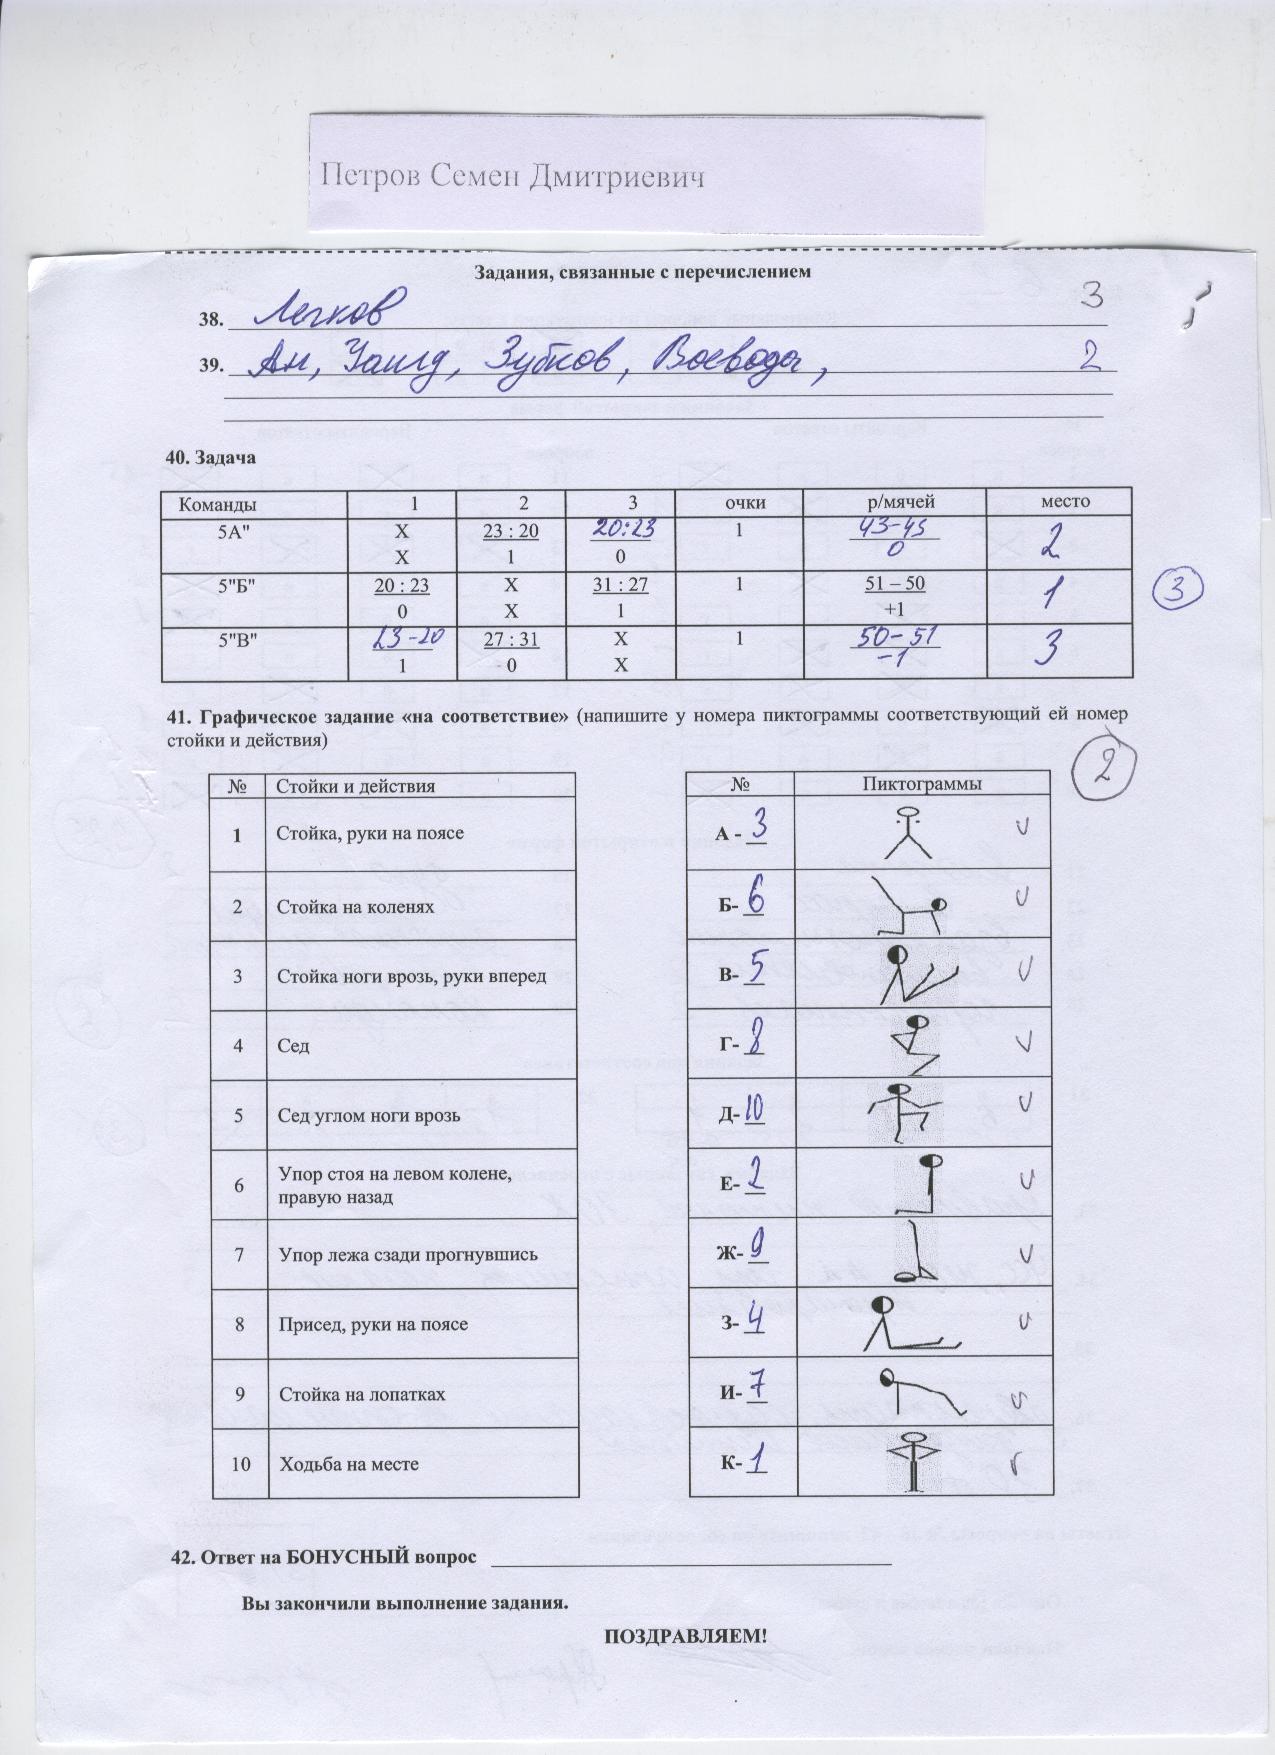 Петров Семен Дмитриевич
Задания, связанные с перечислением
38. Легков 3
39. Ан, Уайлд, Зубков, Воевода, 2
40. Задача
Команды 1 2 3 очки р/мячей место
5А" Х 23 : 20 20:23 1 43-43 2
Х 1 0 0
5"Б" 20 : 23 Х 31 : 27 1 51 – 50 1 3
0 Х 1 +1
5"В" 23-20 27 : 31 Х 1 50-51 3
1 0 Х -1
41. Графическое задание «на соответствие» (напишите у номера пиктограммы соответствующий ей номер
стойки и действия)
2
№ Стойки и действия № Пиктограммы
1 Стойка, руки на поясе А - 3
2 Стойка на коленях Б- 6
3 Стойка ноги врозь, руки вперед В- 5
4 Сед Г- 8
5 Сед углом ноги врозь Д- 10
6 Упор стоя на левом колене,
правую назад Е- 2
7 Упор лежа сзади прогнувшись Ж- 9
8 Присед, руки на поясе З- 4
9 Стойка на лопатках И- 7
10 Ходьба на месте К- 1
42. Ответ на БОНУСНЫЙ вопрос
Вы закончили выполнение задания.
ПОЗДРАВЛЯЕМ!